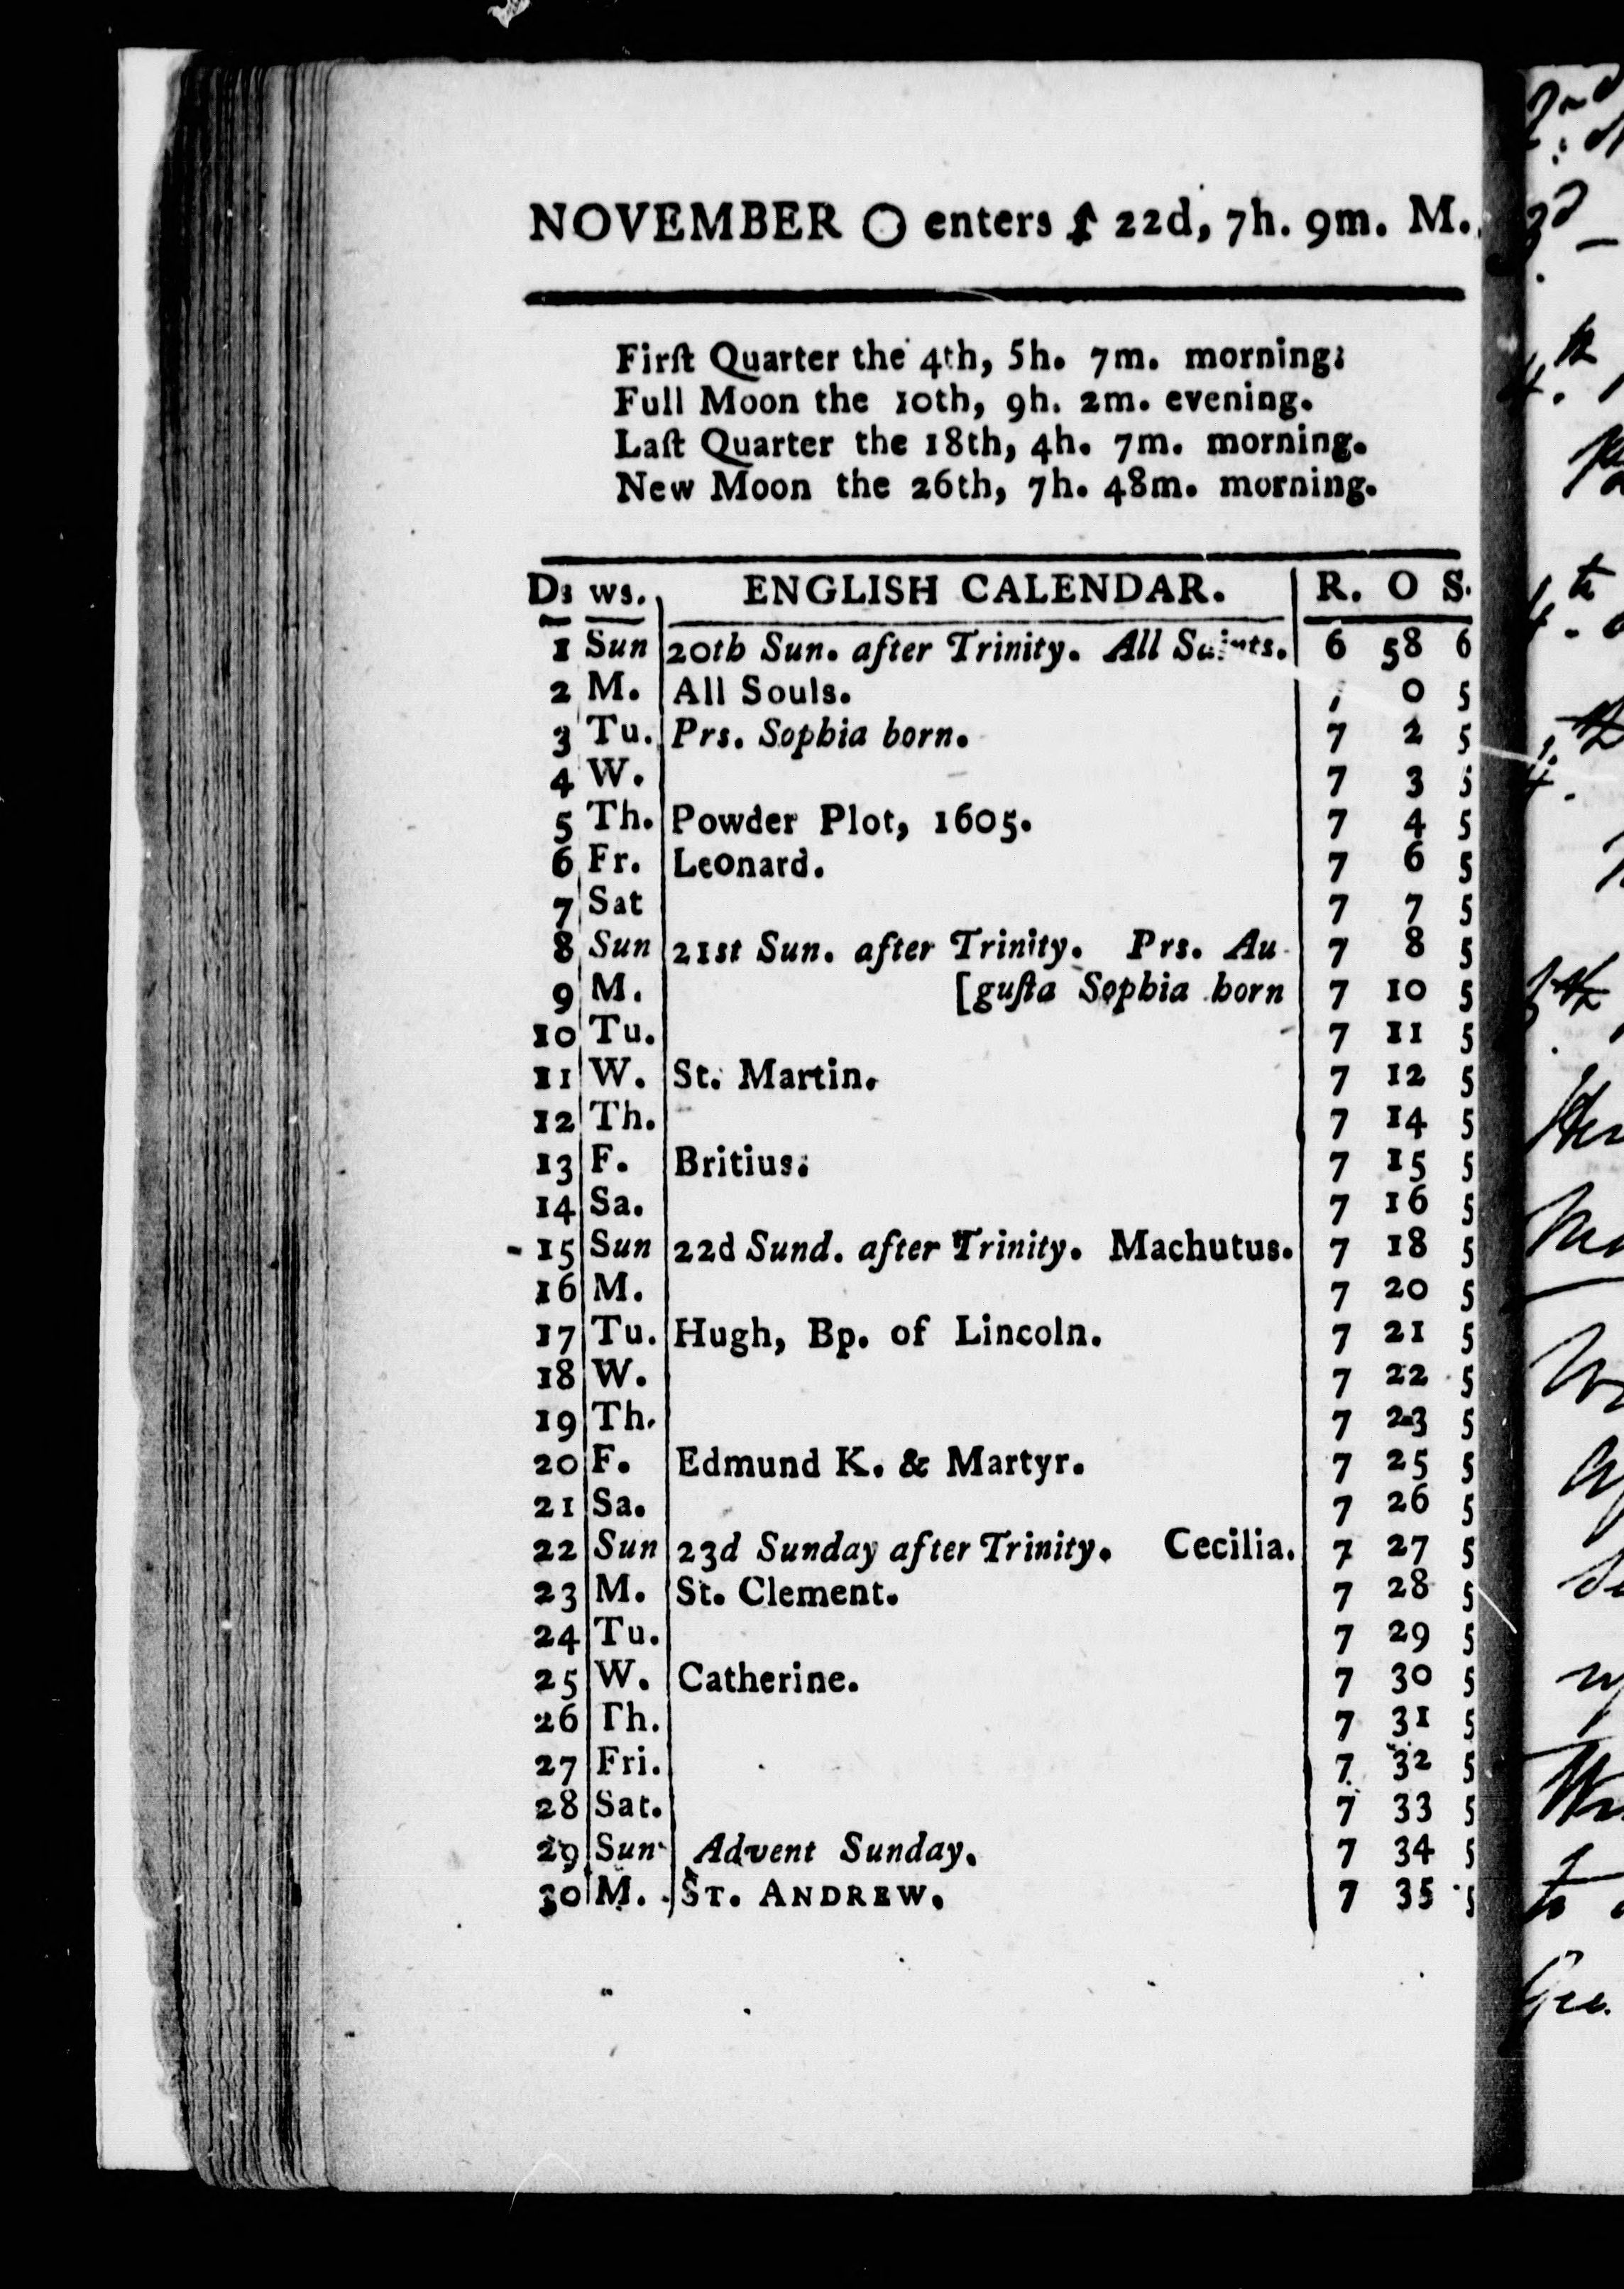 NOVEMBER ◯ enters ♐ 22d, 7h. 9m. M.
Firſt Quarter the 4th, 5h. 7m. morning:
Full Moon the 10th, 9h. 2m. evening.
Laſt Quarter the 18th, 4h. 7m. morning.
New Moon the 26th, 7h. 48m. morning.
Ds ws. ENGLISH CALENDAR. R. O S.
1 Sun 20th Sun. after Trinity. All Saints. 6 58 6
2 M. All Souls. 7 0 5
3 Tu. Prs. Sophia born. 7 2 5
4 W. 7 3 5
5 Th. Powder Plot, 1605. 7 4 5
6 Fr. Leonard. 7 6 5
7 Sat 7 7 5
8 Sun 21st Sun. after Trinity. Prs. Au- 7 8 5
9 M. [guſta Sophia born 7 10 5
10 Tu. 7 11 5
11 W. St. Martin. 7 12 5
12 Th. 7 14 5
13 F. Britius. 7 15 5
14 Sa. 7 16 5
15 Sun 22d Sund. after Trinity. Machutus. 7 18 5
16 M. 7 20 5
17 Tu. Hugh, Bp. of Lincoln. 7 21 5
18 W. 7 22 5
19 Th. 7 23 5
20 F. Edmund K. & Martyr. 7 25 5
21 Sa. 7 26 5
22 Sun 23d Sunday after Trinity. Cecilia. 7 27 5
23 M. St. Clement. 7 28 5
24 Tu. 7 29 5
25 W. Catherine. 7 30 5
26 Th. 7 31 5
27 Fri. 7 32 5
28 Sat. 7 33 5
29 Sun Advent Sunday. 7 34 5
30 M. ST. ANDREW. 7 35 5